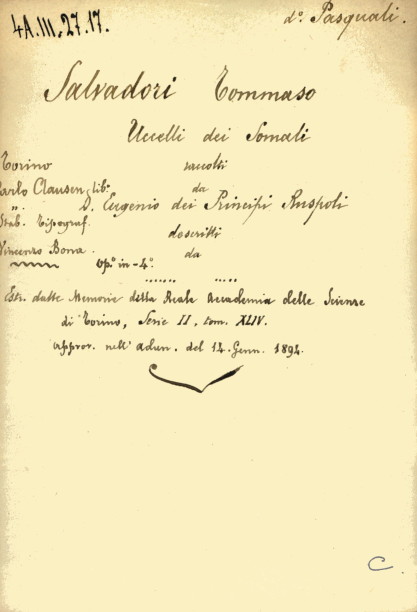 4A.III.27.17.
d.º Pasquali.
Salvadori Tommaso
Uccelli dei Somali
Torino raccolti
Carlo Clausen, lib.º da
" D. Eugenio dei Principi Ruspoli
Stab. Tipograf. descritti
Vincenzo Bona. da
Op.º in-4º.
Estr. dalle Memorie della Reale Accademia delle Scienze
di Torino, Serie II, tom. XLIV.
Approv. nell'adun. del 14 Genn. 1894.
C.